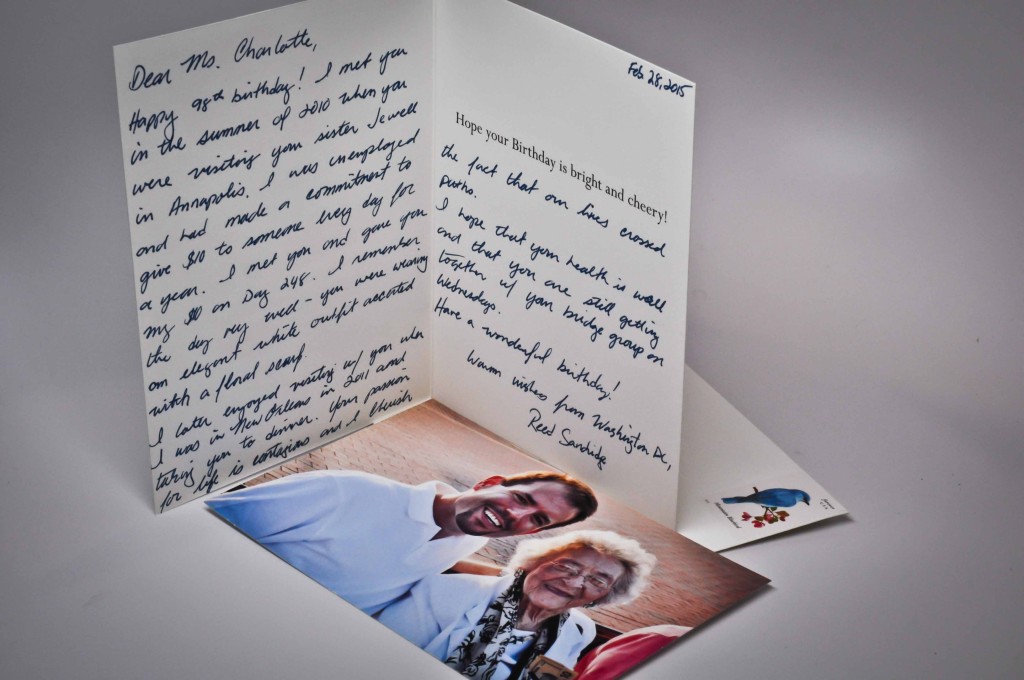 Dear Ms. Charlotte,
Happy 98th birthday! I met you
in the summer of 2010 when you
were visiting your sister Jewell
in Annapolis. I was unemployed
and had made a commitment to
give $10 to someone every day for
a year. I met you and gave you
my $10 on Day 248. I remember
the day very well - you were wearing
an elegant white outfit accented
with a floral scarf.
I later enjoyed visiting w/ you when
I was in New Orleans in 2011 and
taking you to dinner. Your passion
for life is contagious and I cherish
Feb. 28, 2015
Hope your Birthday is bright and cheery!
the fact that our lives crossed
paths.
I hope that your health is well
and that you are still getting
together w/ your bridge group on
Wednesdays.
Have a wonderful birthday!
Warm wishes from Washington DC,
Reed Sandridge